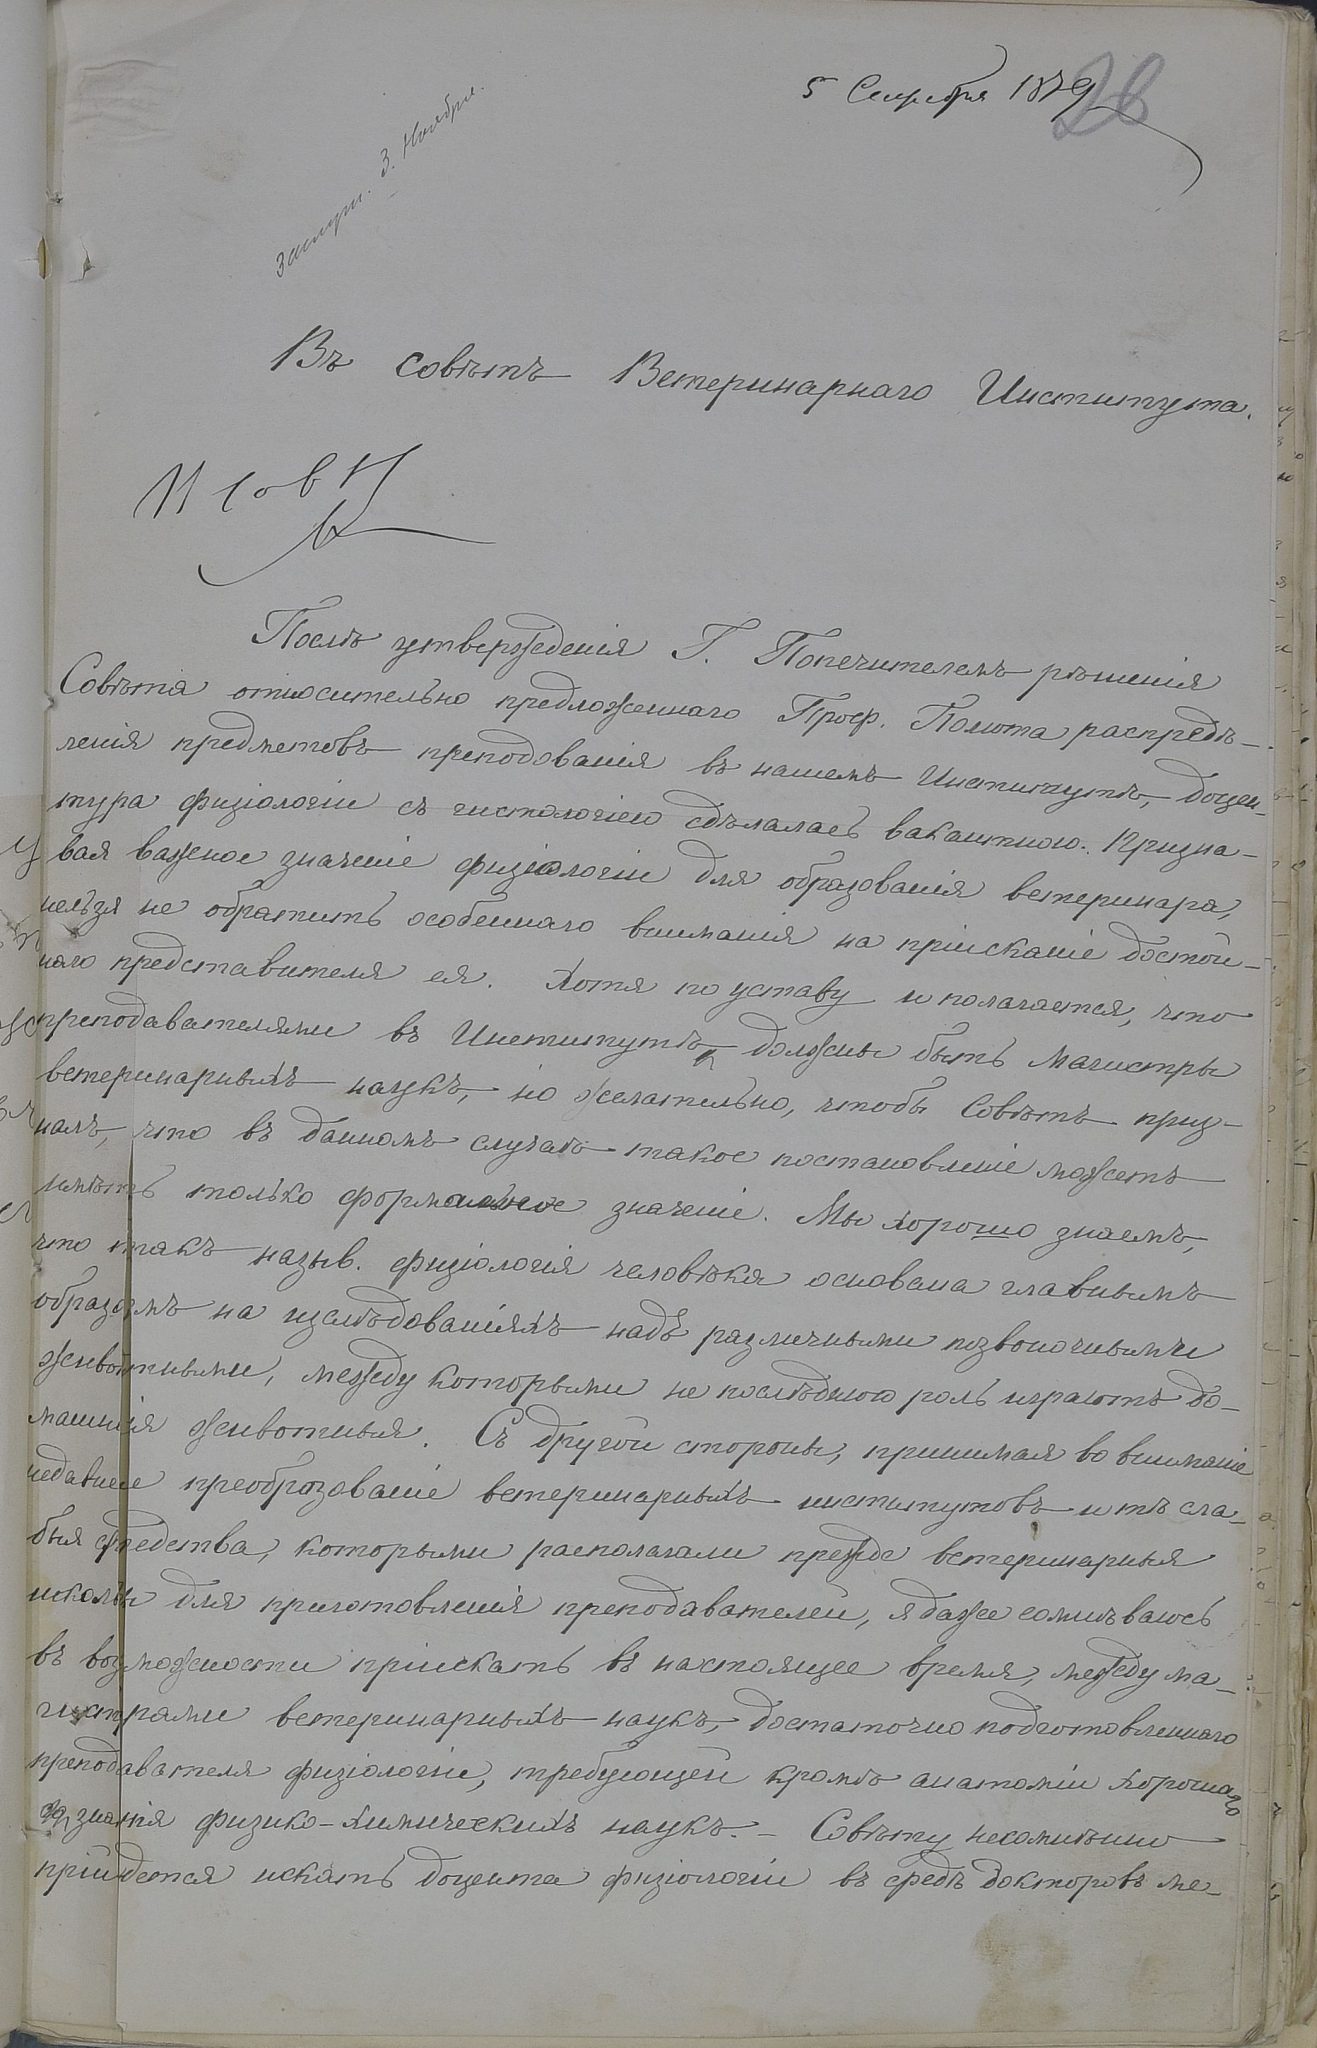 5 Сентября 1879
26
3. Ноября.
Въ Совѣтъ Ветеринарнаго Института.
Послѣ утвержденія Г. Попечителемъ рѣшенія
Совѣта относительно предложеннаго Проф. Полюта распредѣ-
ленія предметовъ преподованія въ нашемъ Институтѣ, доцен-
тура физіологіи съ гистологіею сдѣлалась вакантною. Призна-
вая важное значеніе физіологіи для образованія ветеринара,
нельзя не обратить особеннаго вниманія на пріисканіе достой-
наго представителя ея. Хотя по уставу и полагается, что
преподавателями въ Институтѣ должны быть магистры
ветеринарныхъ наукъ, но желательно, чтобы Совѣтъ приз-
налъ, что въ данномъ случаѣ такое постановленіе можетъ
имѣть только формальное значеніе. Мы хорошо знаемъ,
что такъ назыв. физіологія человѣка основана главнымъ
образомъ на изслѣдованіяхъ надъ различными позвоночными
животными, между которыми не послѣднюю роль играютъ до-
машнія животныя. Съ другой стороны, принимая во вниманіе
недавнее преобразованіе ветеринарныхъ институтовъ и тѣ сла-
быя средства, которыми располагали прежде ветеринарныя
школы для приготовленія преподавателей, я даже сомнѣваюсь
въ возможности пріискать въ настоящее время, между ма-
гистрами ветеринарныхъ наукъ, достаточно подготовленнаго
преподавателя физіологіи, требующей кромѣ анатоміи хорошаго
знанія физико-химическихъ наукъ. – Совѣту несомнѣнно
прійдется искать доцента физіологіи въ средѣ докторовъ ме-